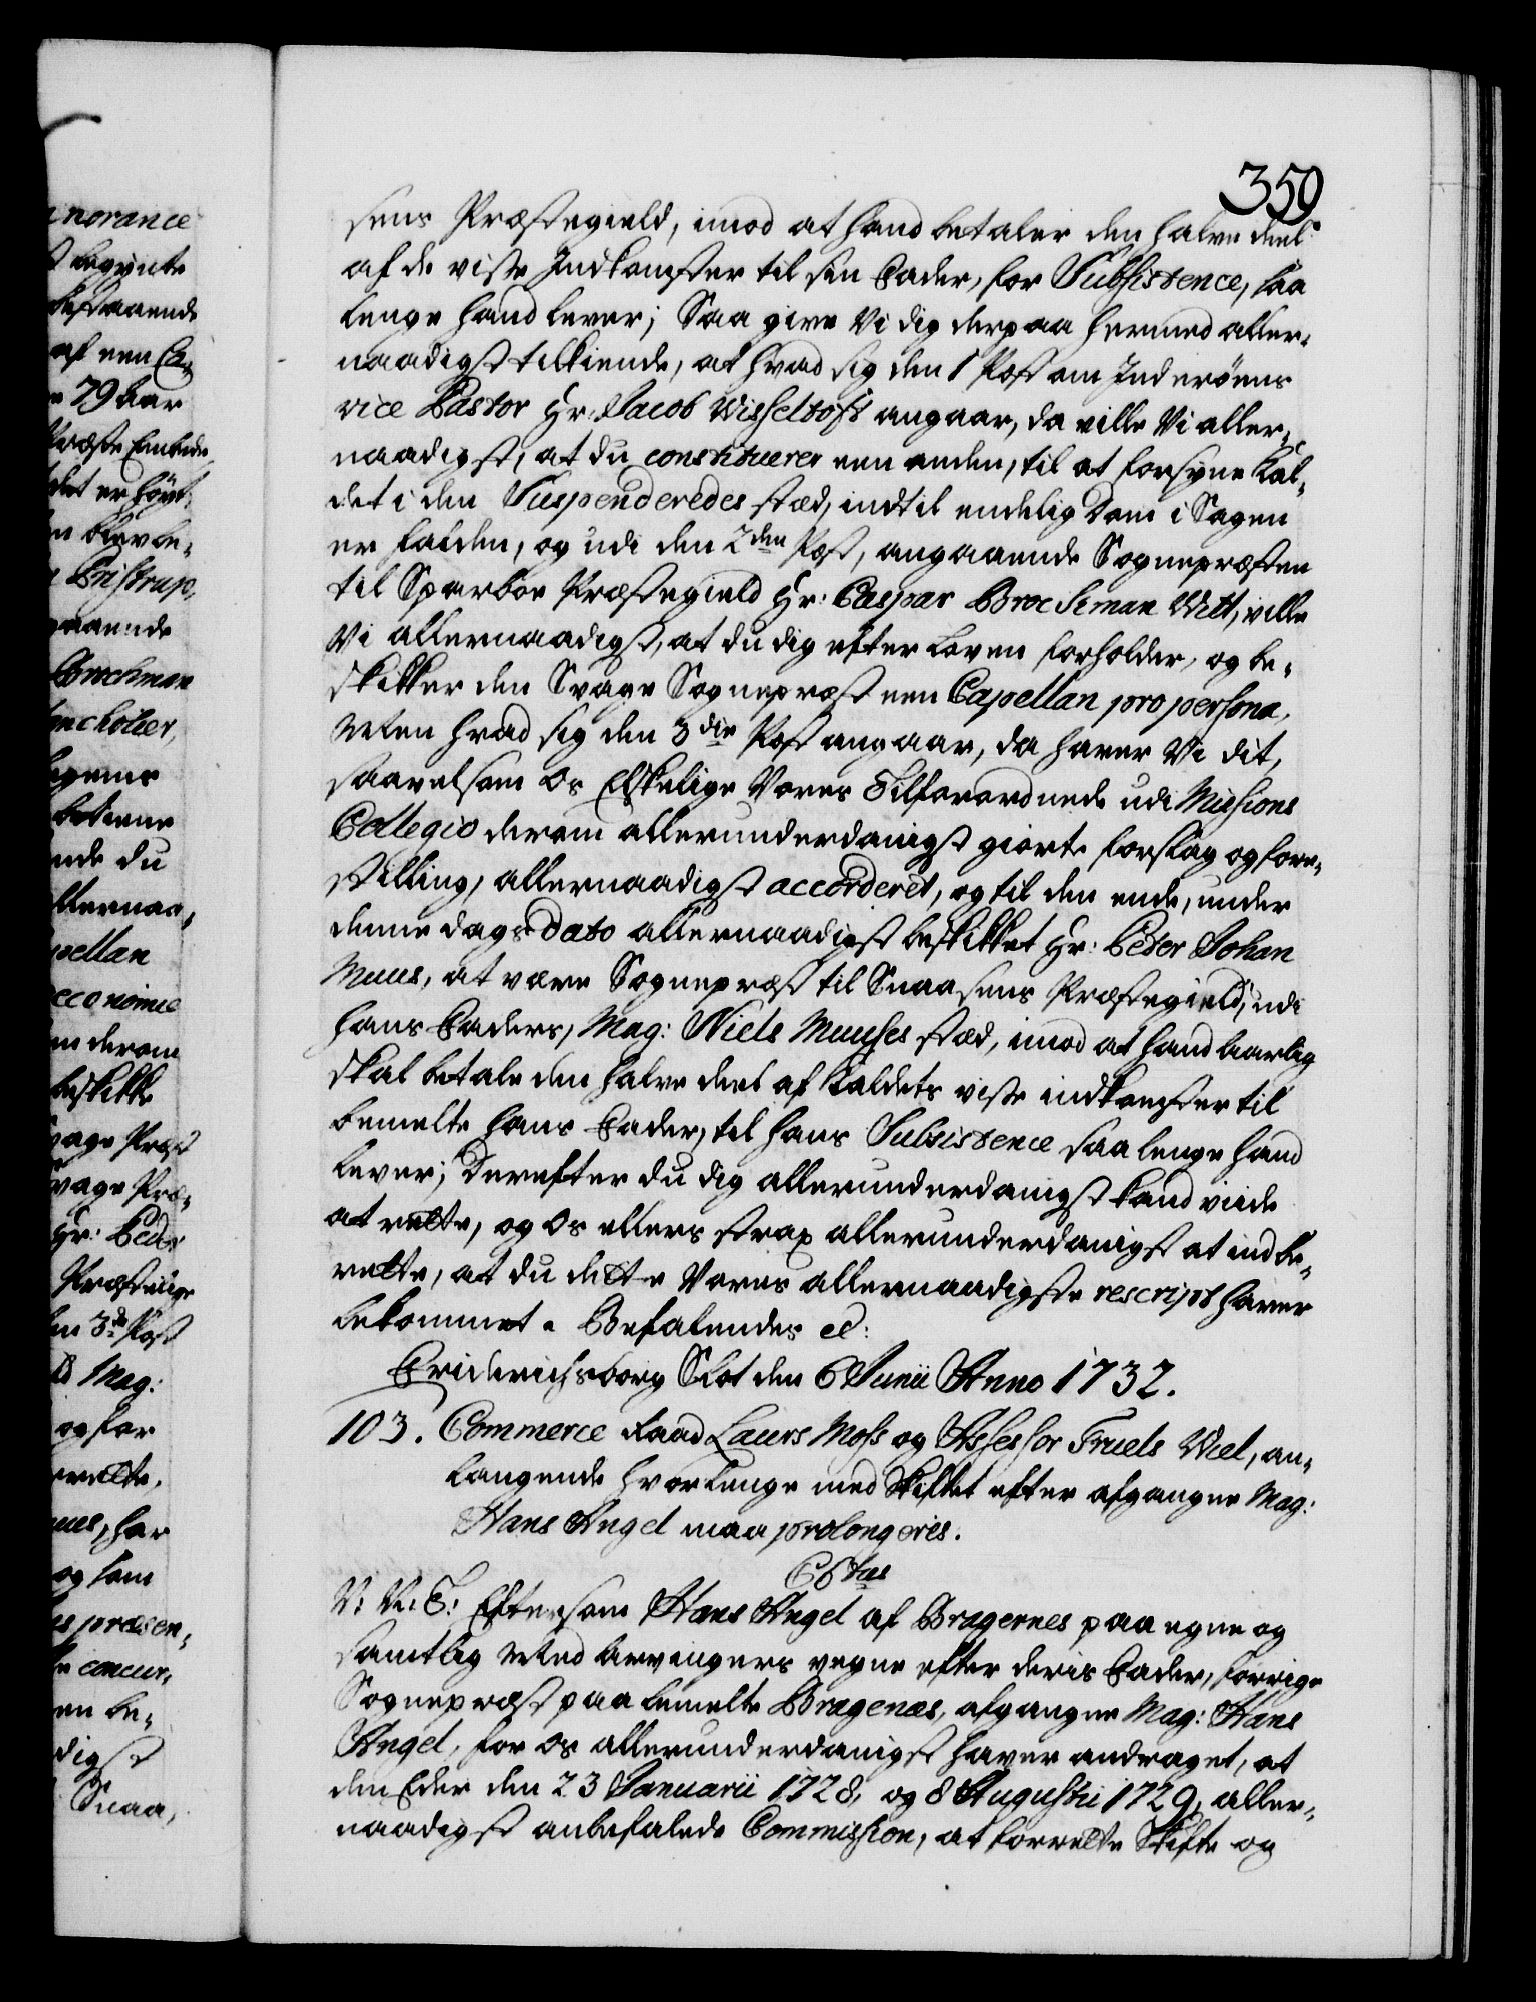 359
sens Præstegield, imod at hand betaler den halve deel
af de viste Indkomster til sin Fader, for Subsistence, saa
lenge hand lever; Saa give Vi dig derpaa hermed aller-
naadigst tilkiende, at hvad sig den 1 Post om Inderøens
vice Pastor Hr. Jacob Wisseltoft angaar, da ville Vi aller-
naadigst, at du constituerer een anden, til at forsyne Kal-
det i den Suspenderedes stæd, indtil endelig Dom i Sagen
er falden, og udi den 2den Post, angaaende Sognepræsten
til Sparboe Præstegield Hr: Caspar Brochman Witt, ville
Vi allernaadigst, at du dig efter Loven forholder, og be-
skikker den Svage Sognepræst een Capellan pro persona,
Men hvad sig den 3die Post angaar, da haver Vi dit,
saavelsom Os Elskelige Vores Tilforordnede udi Missions
Collegio derom allerunderdanigst giorte forslag og fore-
stilling, allernaadigst accorderet, og til den ende, under
denne dags Dato allernaadigst beskikket Hr: Peter Johan
Muus, at være Sognepræst til Snaasens Præstegield, udi
hans Faders, Mag: Niels Muuses stæd, imod at hand aarlig
skal betale den halve deel af Kaldets viste indkomster til
bemelte hans Fader, til hans Subsistence saa lenge hand
lever; Derefter du dig allerunderdanigst kand viide
at rette, og Os ellers strax allerunderdanigst at indbe-
rette, at du dette Vores allernaadigste rescript haver
bekommet. Befalendes etc:
Friderichsborg Slot den 6 Junii Anno 1732.
103. Commerce Raad Laurs Moss og Assessor Truels Wiel, an-
langende hvorlenge med Skiftet efter afgangne Mag:
Hans Angel maa prolongeris.
C 6tus
V: V: T: Eftersom Hans Angel af Bragernes paa egne og
samtlig Med Arvingers vegne efter deris Fader, forrige
Sognepræst paa bemelte Bragenæs, afgangne Mag: Hans
Angel, for Os allerunderdanigst haver andraget, at
den Eder den 23 Januarii 1728, og 8 Augusti 1729, aller-
naadigst anbefalede Commission, at forrette Skifte og